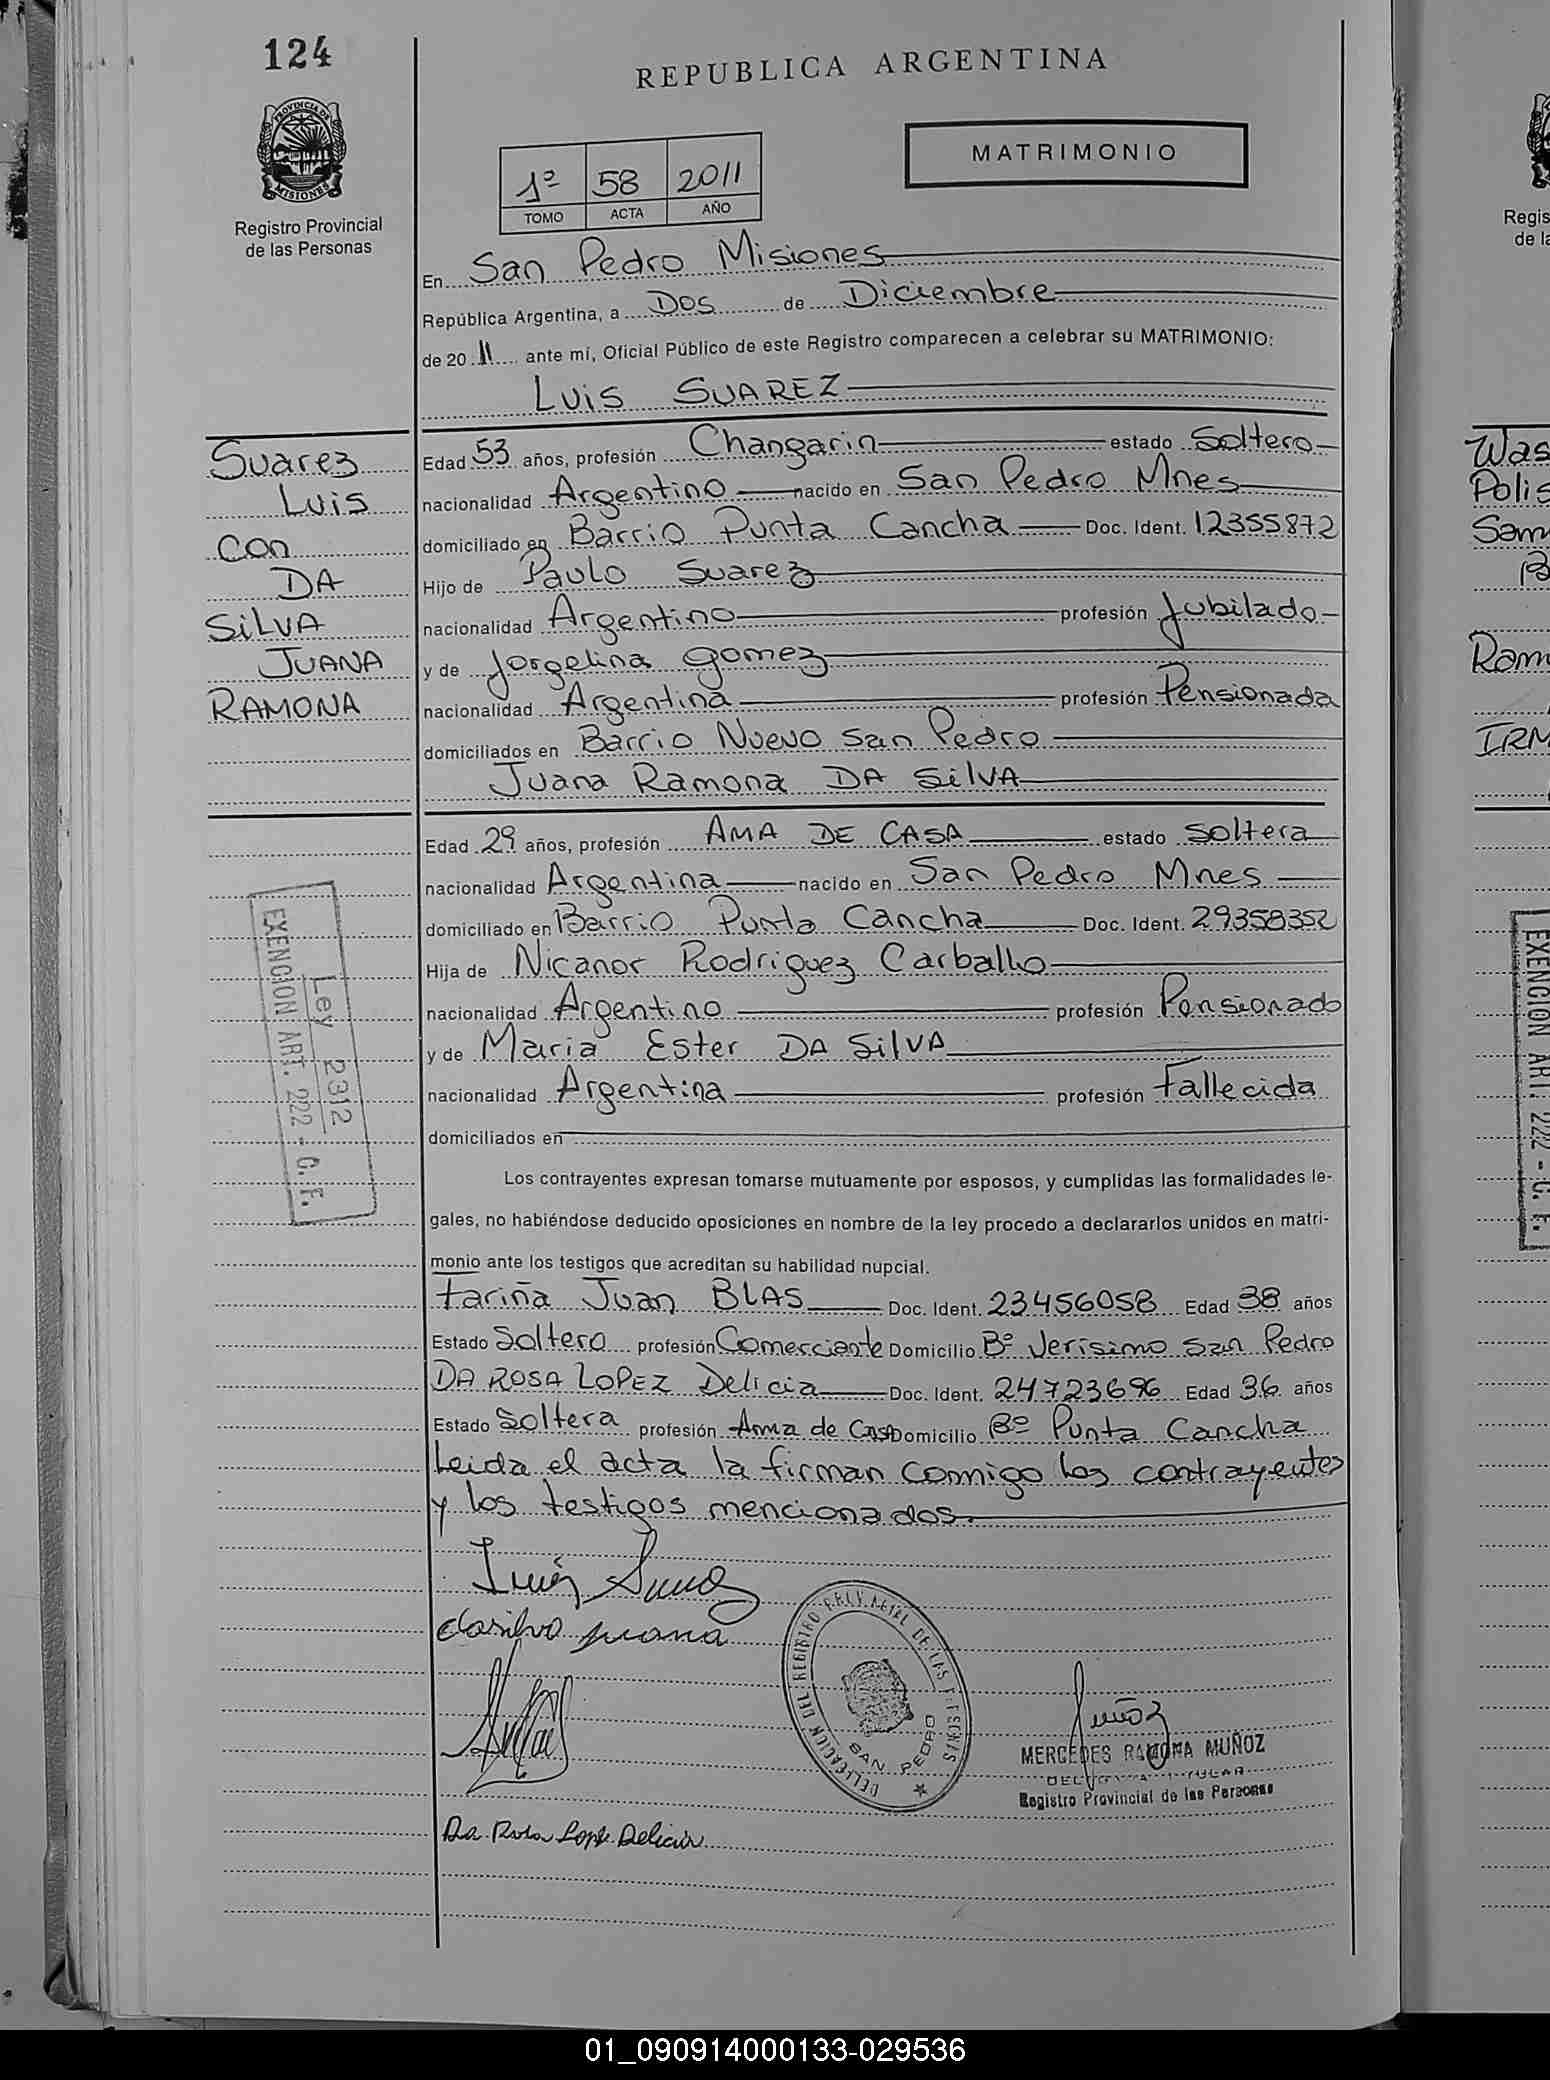 124
REPUBLICA ARGENTINA
PROVINCIA DE
MISIONES
Registro Provincial
de las Personas
MATRIMONIO
1º 58 2011
TOMO ACTA AÑO
En San Pedro Misiones
República Argentina, a Dos de Diciembre
de 2011 ante mí, Oficial Público de este Registro comparecen a celebrar su MATRIMONIO:
Luis SUAREZ
Suarez
Luis
con
DA
SiLVA
JUANA
RAMONA
Edad 53 años, profesión Changarin estado Soltero
nacionalidad Argentino nacido en San Pedro Mnes
domiciliado en Barrio Punta Cancha Doc. Ident. 12355872
Hijo de Paulo Suarez
nacionalidad Argentino profesión Jubilado
y de Jorgelina gomez
nacionalidad Argentina profesión Pensionada
domiciliados en Barrio Nuevo San Pedro
Juana Ramona DA SilVA
Edad 29 años, profesión AMA DE CASA estado Soltera
nacionalidad Argentina nacido en San Pedro Mnes
domiciliado en Barrio Punta Cancha Doc. Ident. 29358352
Hija de Nicanor Rodriguez Carballo
nacionalidad Argentino profesión Pensionado
y de Maria Ester DA SilVA
nacionalidad Argentina profesión Fallecida
domiciliados en
Ley 2312
EXENCION ART. 222 - C. F.
Los contrayentes expresan tomarse mutuamente por esposos, y cumplidas las formalidades le-
gales, no habiéndose deducido oposiciones en nombre de la ley procedo a declararlos unidos en matri-
monio ante los testigos que acreditan su habilidad nupcial.
Fariña Juan BLAS Doc. Ident. 23456058 Edad 38 años
Estado Soltero profesión Comerciante Domicilio Bº Verisimo San Pedro
DA ROSA LOPEZ Delicia Doc. Ident. 24723696 Edad 36 años
Estado Soltera profesión Ama de CASA Domicilio Bº Punta Cancha
Leida el acta la firman conmigo los contrayentes
y los testigos mencionados.
Luis Suarez
dasilva juana
DELEGACION DEL REGISTRO DE LAS
SAN PEDRO
Muñoz
MERCEDES RAMONA MUÑOZ
Registro Provincial de las Personas
Da Rosa Lopez Delicia
Was
Polis
Ram
IRM
Regis
de la
EXENCION ART. 222 - C. F.
01_090914000133-029536